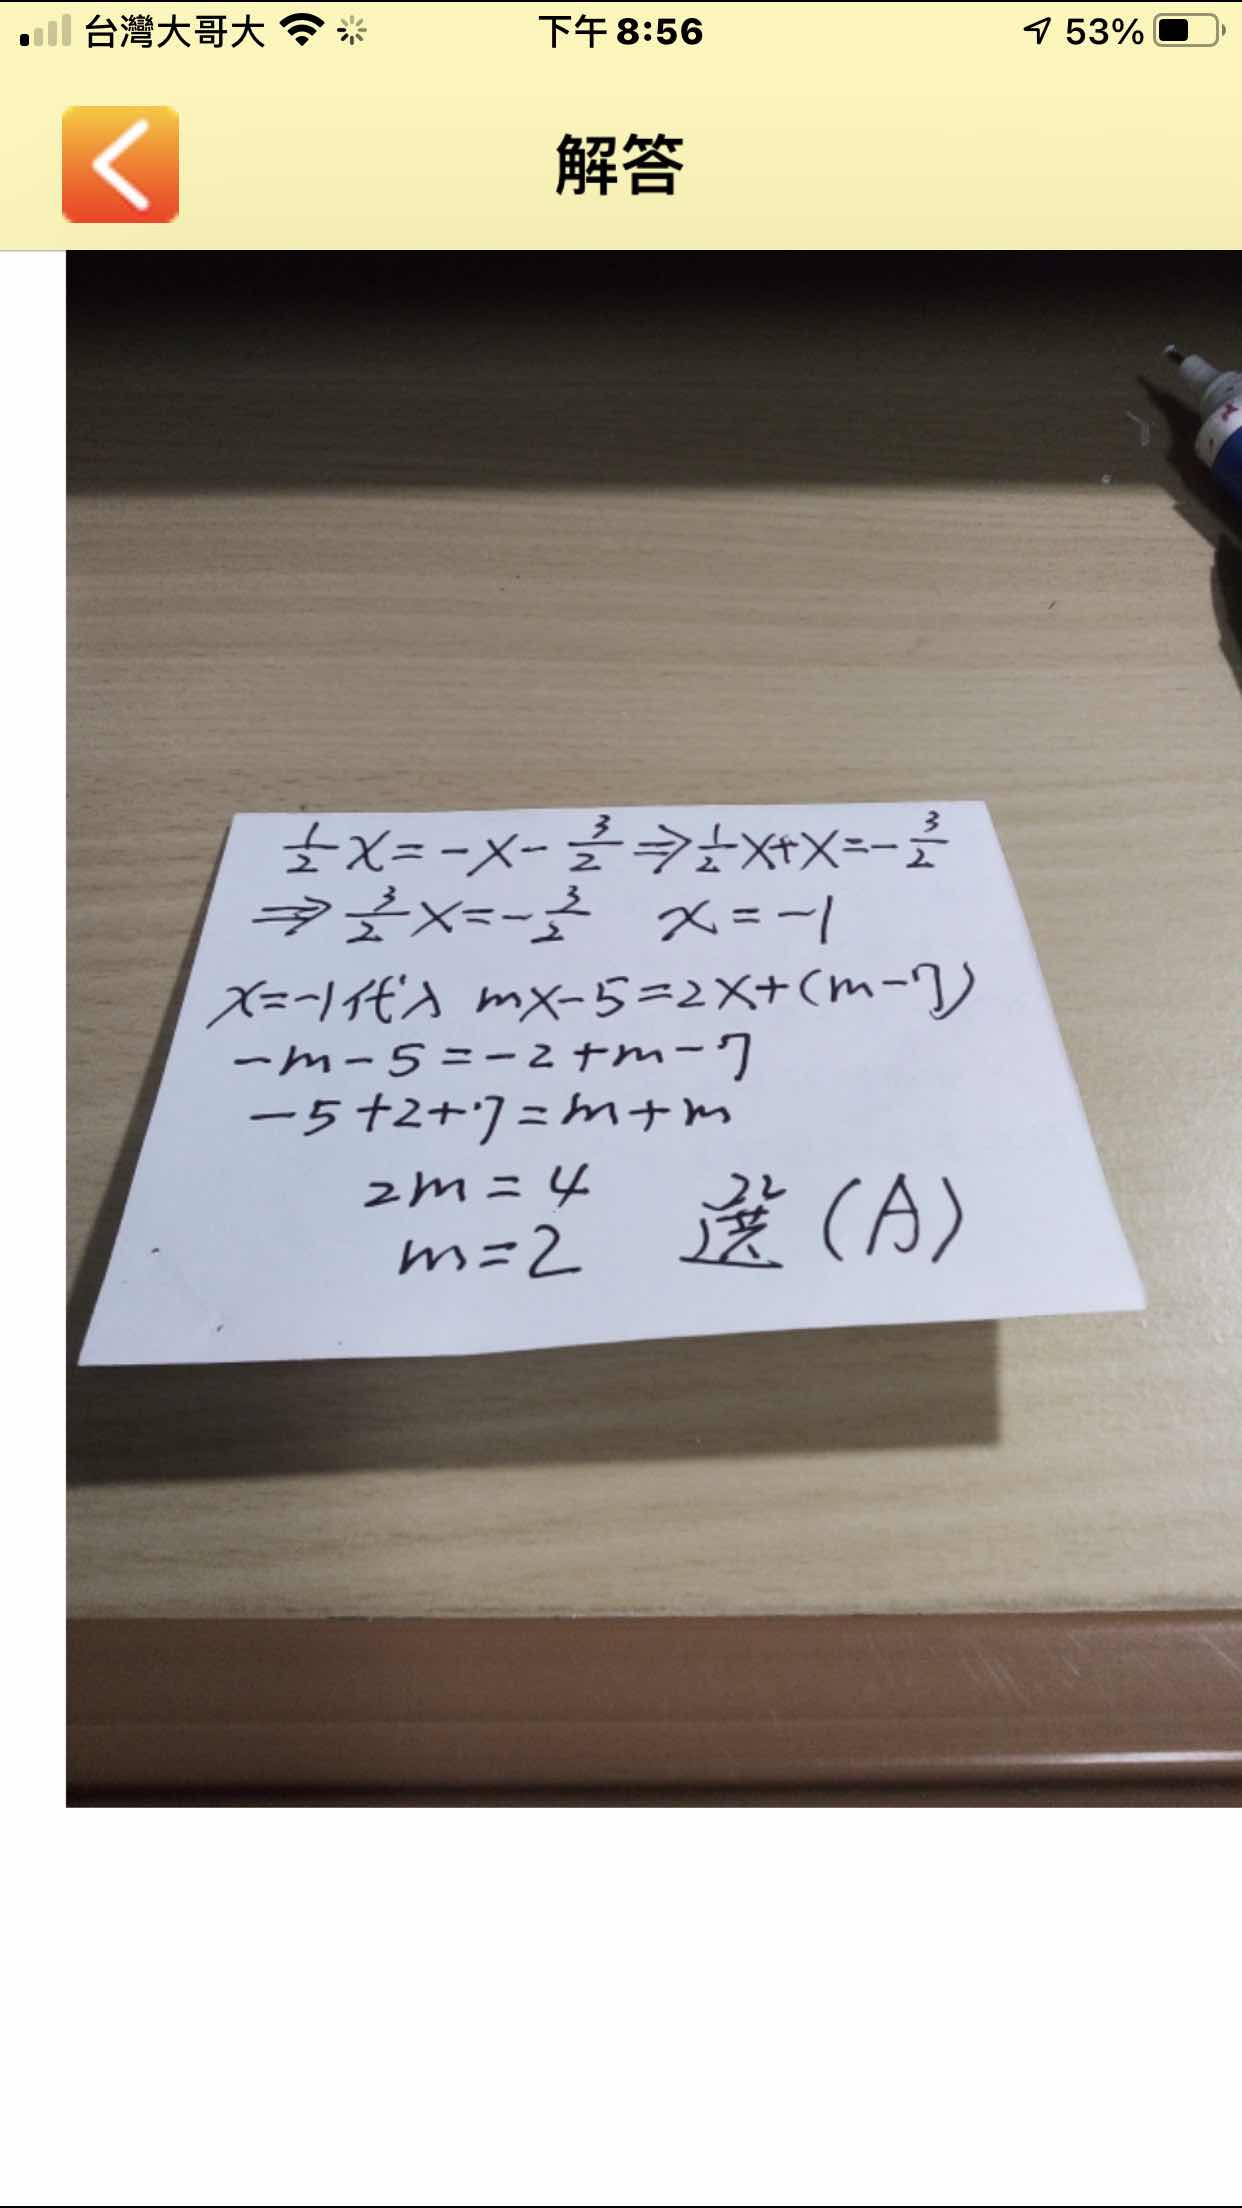 台灣大哥大 下午 8:56 53%
解答
1/2 x = -x - 3/2 ⇒ 1/2 x + x = - 3/2
⇒ 3/2 x = - 3/2 x = -1
x = -1 代入 mx - 5 = 2x + (m - 7)
-m - 5 = -2 + m - 7
-5 + 2 + 7 = m + m
2m = 4
m = 2 選 (A)